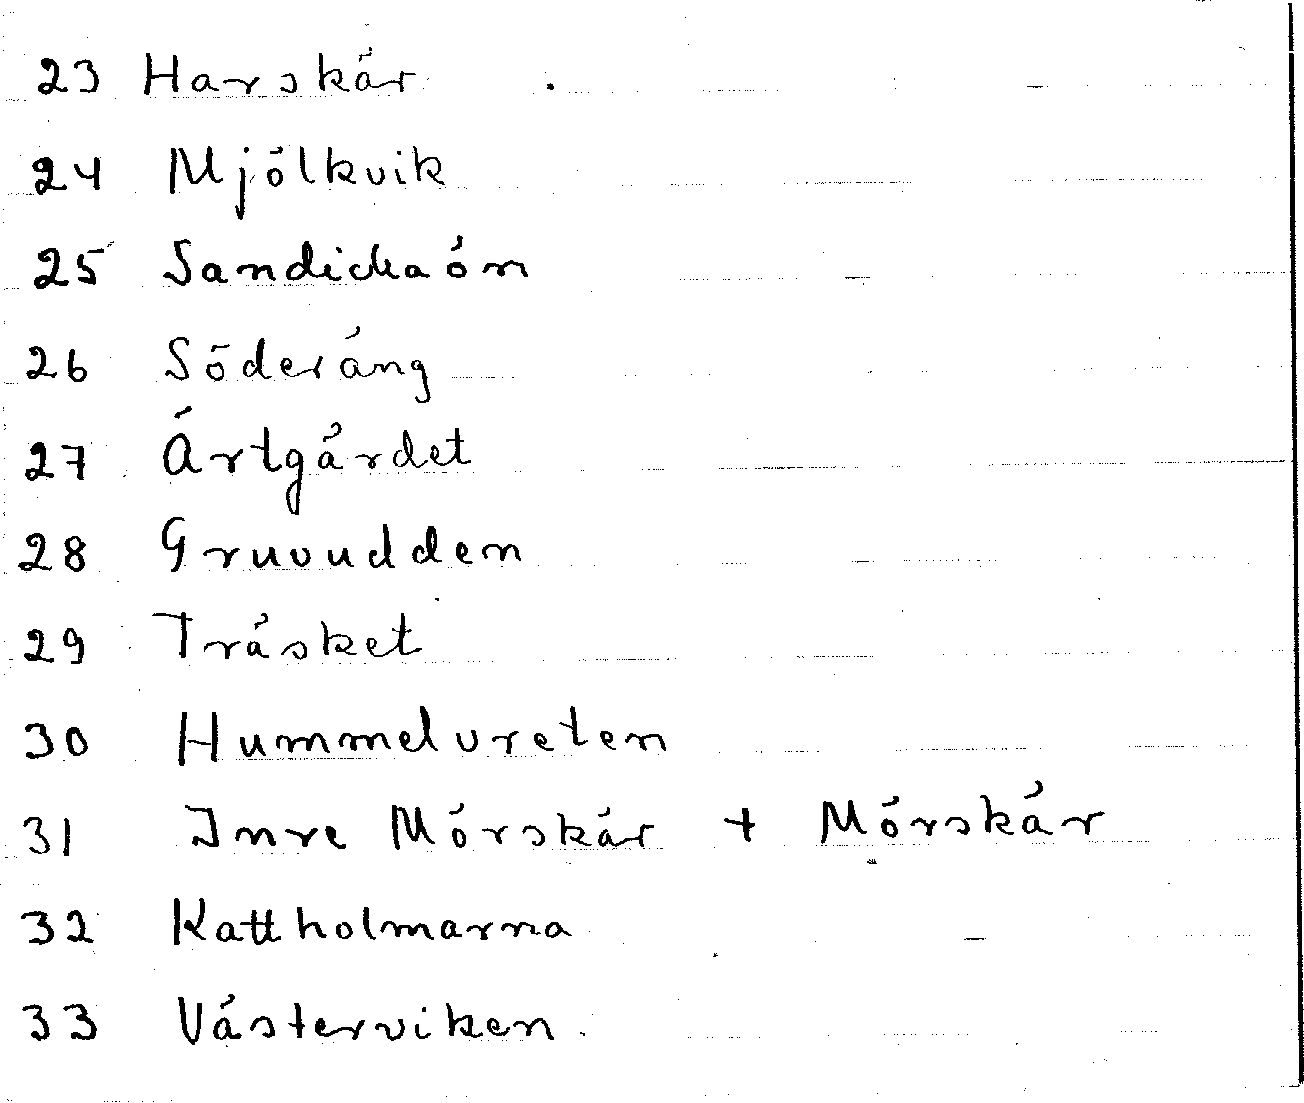 23 Harskär
24 Mjölkvik
25 Sandickaön
26 Söderäng
27 Ärtgärdet
28 Gruvudden
29 Träsket
30 Hummelvreten
31 Inre Mörskär + Mörskär
32 Kattholmarna
33 Västerviken